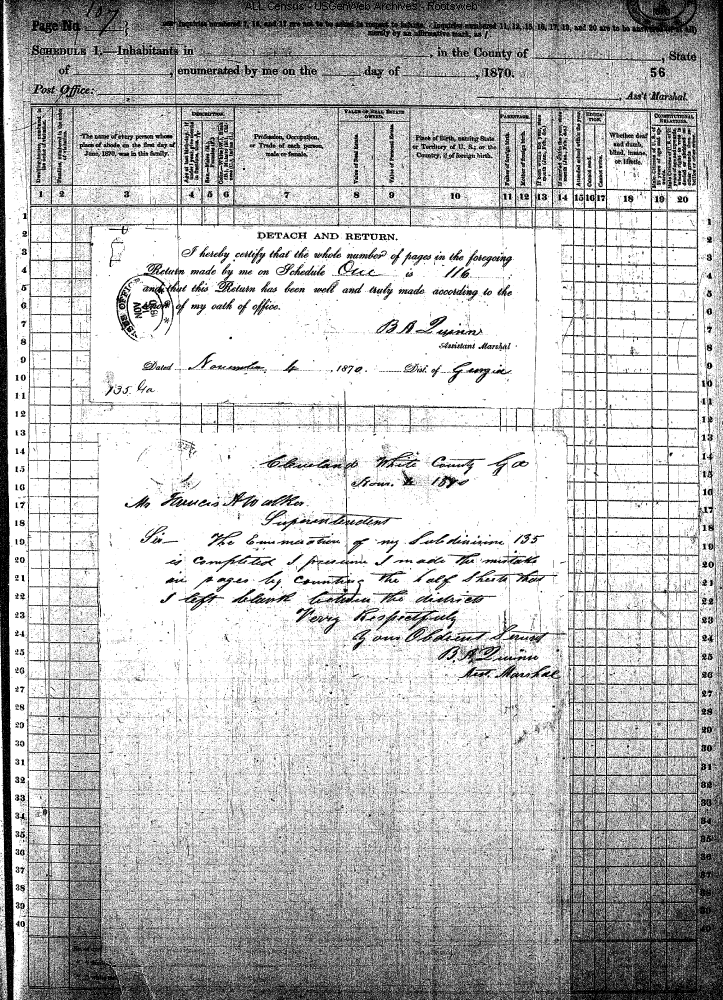 ALL Census - USGenWeb Archives - Rootsweb
Page No 107
Inquiries numbered 7, 16, and 17 are not to be asked in respect to infants. Inquiries numbered 11, 12, 15, 16, 17, 19, and 20 are to be answered (if at all)
merely by an affirmative mark, as /
SCHEDULE 1.—Inhabitants in , in the County of , State
of , enumerated by me on the day of , 1870. 56
Post Office: Ass't Marshal.
DESCRIPTION. VALUE OF REAL ESTATE OWNED. PARENTAGE. EDUCATION. CONSTITUTIONAL RELATIONS.
The name of every person whose place of abode on the first day of June, 1870, was in this family.
Profession, Occupation, or Trade of each person, male or female.
Value of Real Estate.
Value of Personal Estate.
Place of Birth, naming State or Territory of U. S.; or the Country, if of foreign birth.
Father of foreign birth.
Mother of foreign birth.
Attended school within the year.
Cannot read.
Cannot write.
Whether deaf and dumb, blind, insane, or idiotic.
1 2 3 4 5 6 7 8 9 10 11 12 13 14 15 16 17 18 19 20
DETACH AND RETURN.
I hereby certify that the whole number of pages in the foregoing
Return made by me on Schedule One is 116
and that this Return has been well and truly made according to the
tenor of my oath of office.
NOV
1870
B A Quinn
Assistant Marshal
Dated November 4 1870. Dist. of Georgia
135. Ga
Cleveland White County Ga
Nov. 4 1870
Mr Francis A Walker
Superintendent
Sir— The Enumeration of my Subdivision 135
is completed I presume I made the mistake
in pages by counting the half Sheets that
I left blank between the districts
Very Respectfully
Your Obedient Servant
B. A. Quinn
Asst. Marshal